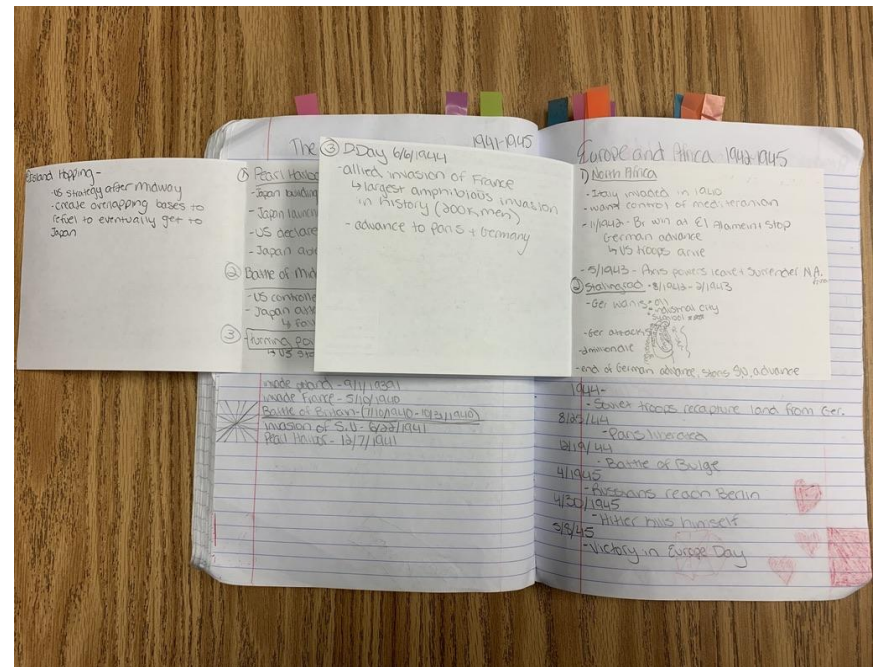 Island Hopping -
-US strategy after Midway
-create overlapping bases to
refuel to eventually get to
Japan
The
1941-1945
① Pearl
-Japan
-Japan
-US declare
-Japan
② Battle of
-US
-Japan
↳
③ -turning
↳ US
③ D-Day 6/6/1944
-allied invasion of France
↳ largest amphibious invasion
in history (200K men)
-advance to Paris + Germany
invade Poland - 9/1/1939
invade France - 5/10/1940
Battle of Britain - (7/10/1940 - 10/31/1940)
invasion of S.U - 6/22/1941
Pearl Harbor - 12/7/1941
Europe and Africa 1942-1945
1) North Africa
-Italy invaded in 1940
-want control of
-11/1942 - Br win at El Alameini stop
German advance
↳ US troops arrive
-5/1943 - Axis powers leave + surrender N.A.
② Stalingrad - 8/1942 - 2/1943
-Ger wants • oil
• industrial city
• symbol
-Ger attacks
-2million die
-end of German advance, starts SU advance
1944-
-Soviet troops recapture land from Ger.
8/25/44
-Paris liberated
12/19/44
-Battle of Bulge
4/1945
-Russians reach Berlin
4/30/1945
-Hitler kills himself
5/8/45
-Victory in Europe Day